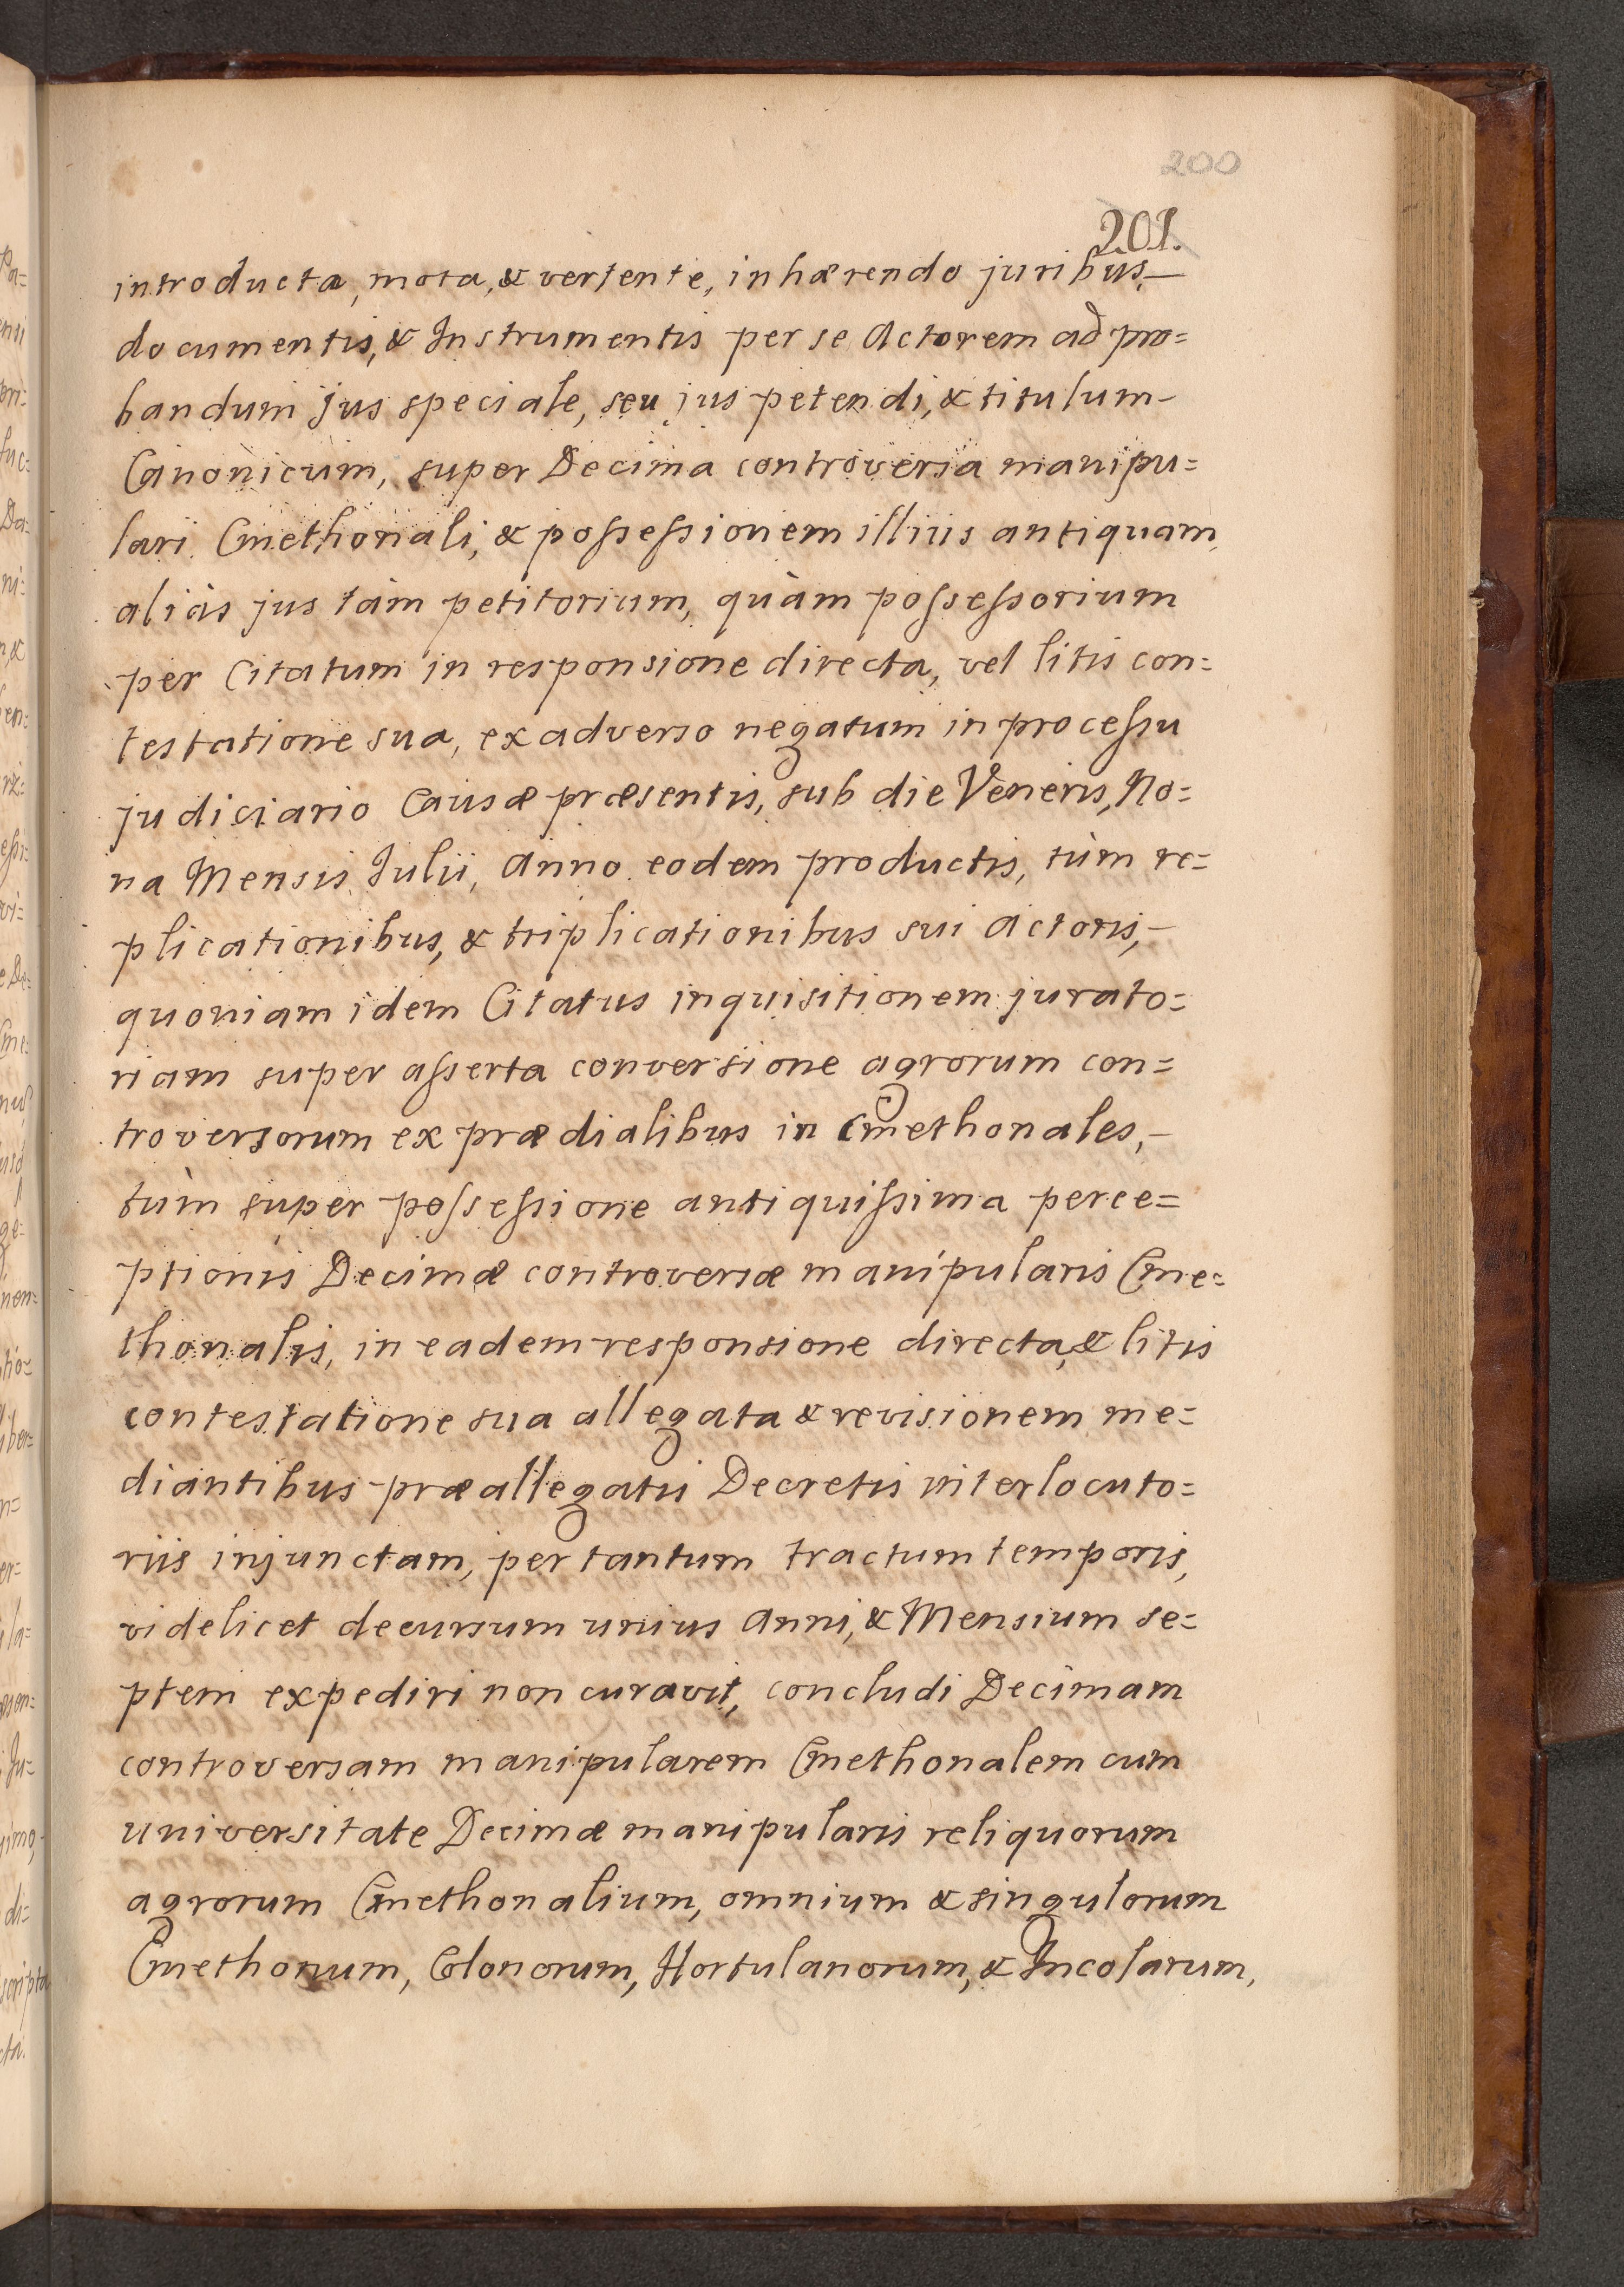 200
201.
introducta, mota, & vertente, inhærendo juribus,—
documentis, & Instrumentis per se Actorem ad pro=
bandum jus speciale, seu jus petendi, & titulum-
Canonicum, super Decima controversa manipu=
lari Cmethonali, & possessionem illius antiquam,
aliàs jus tàm petitorium, quàm possessorium
per Citatum in responsione directa, vel litis con=
testatione sua, ex adverso negatum in processu
judiciario Causæ præsentis, sub die Veneris, No=
na Mensis Julii, Anno eodem productis, tùm re=
plicationibus, & triplicationibus sui Actoris,-
quoniam idem Citatus inquisitionem jurato=
riam super asserta conversione agrorum con=
troversorum ex prædialibus in Cmethonales,-
tùm super possessione antiquissima perce=
ptionis Decimæ controversæ manipularis Cme=
thonalis, in eadem responsione directa, & litis
contestatione sua allegata & revisionem me=
diantibus præallegatis Decretis interlocuto=
riis injunctam, per tantum tractum temporis,
videlicet decursum unius Anni, & Mensium se=
ptem expediri non curavit, concludi Decimam
controversam manipularem Cmethonalem cum
universitate Decimæ manipularis reliquorum
agrorum Cmethonalium, omnium & singulorum
Cmethonum, Colonorum, Hortulanorum, & Incolarum,